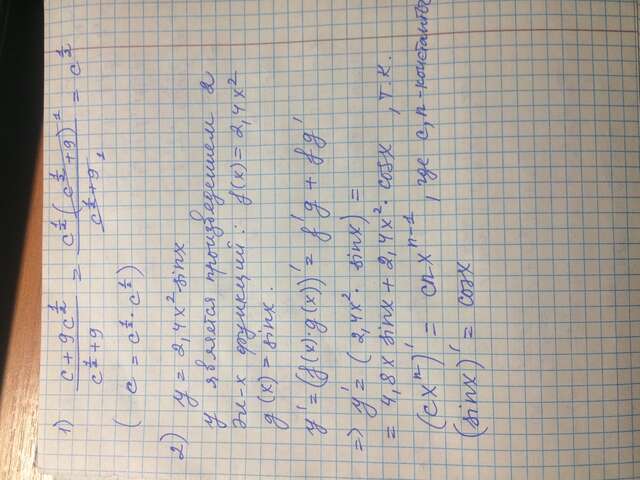 1) (c + 9c^{1/2})/(c^{1/2} + 9) = (c^{1/2}(c^{1/2} + 9)^1)/(c^{1/2} + 9_1) = c^{1/2}
( c = c^{1/2} · c^{1/2} )
2) y = 2,4x² · sinx
y является произведением 2
эл-х функций: f(x) = 2,4x²
g(x) = sinx.
y' = (f(x)·g(x))' = f'g + fg'
=> y' = (2,4x² · sinx) =
= 4,8x sinx + 2,4x² · cosx , т.к.
(cxⁿ)' = cnx^{n-1} , где c,n-константы
(sinx)' = cosx